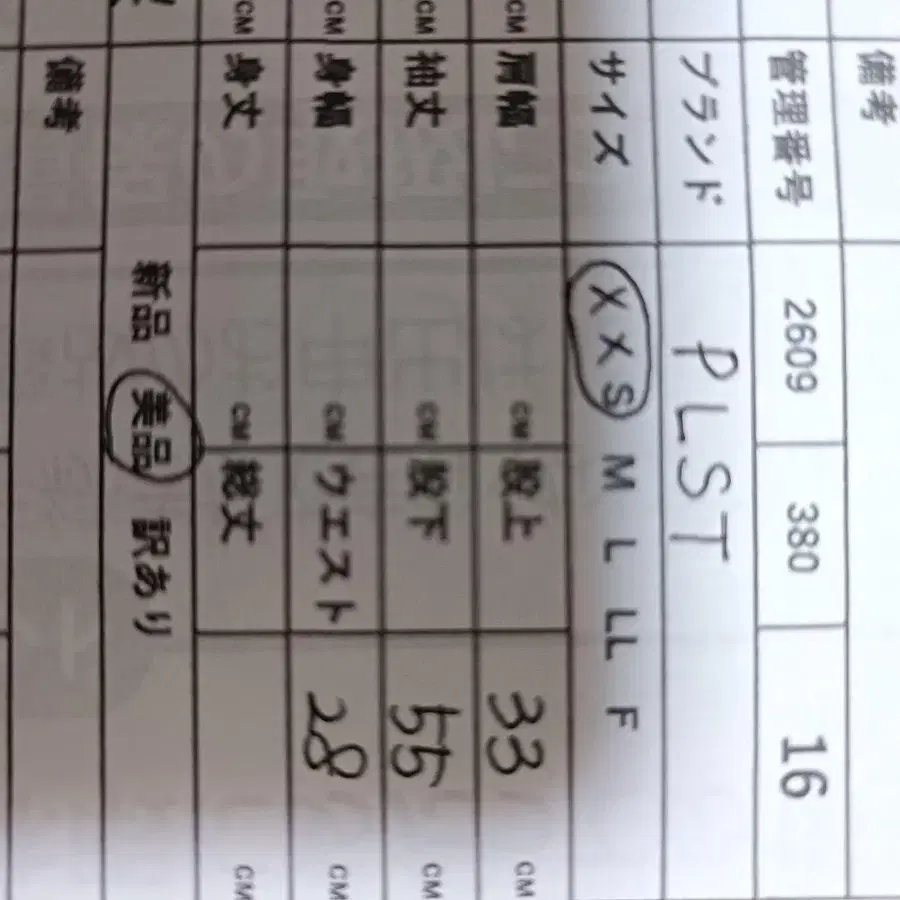 備考
管理番号 2609 380 16
ブランド PLST
サイズ XXS M L LL F
CM 肩幅 CM 股上 33 CM
CM 袖丈 CM 股下 55 CM
CM 身幅 CM ウエスト 28 CM
CM 身丈 CM 総丈 CM
新品 美品 訳あり
備考